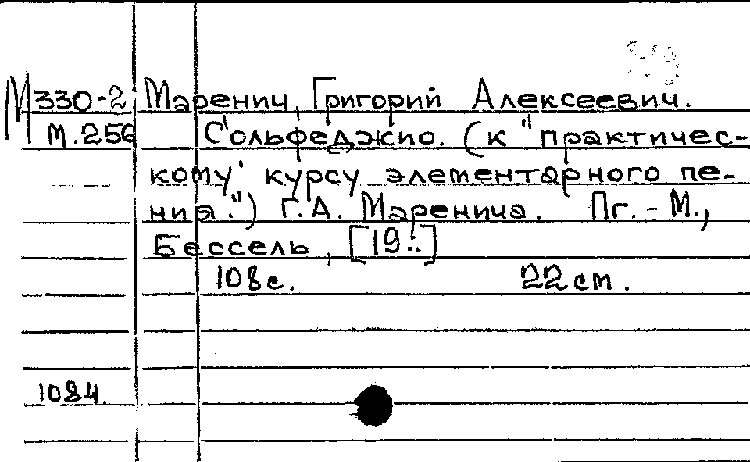 М330-2 Маренич, Григорий Алексеевич.
М.256 Сольфеджио. (к "практичес-
кому курсу элементарного пе-
ния.") Г.А. Маренича. Пг.-М.,
Бессель, [19..]
108 с. 22 см.
1084.